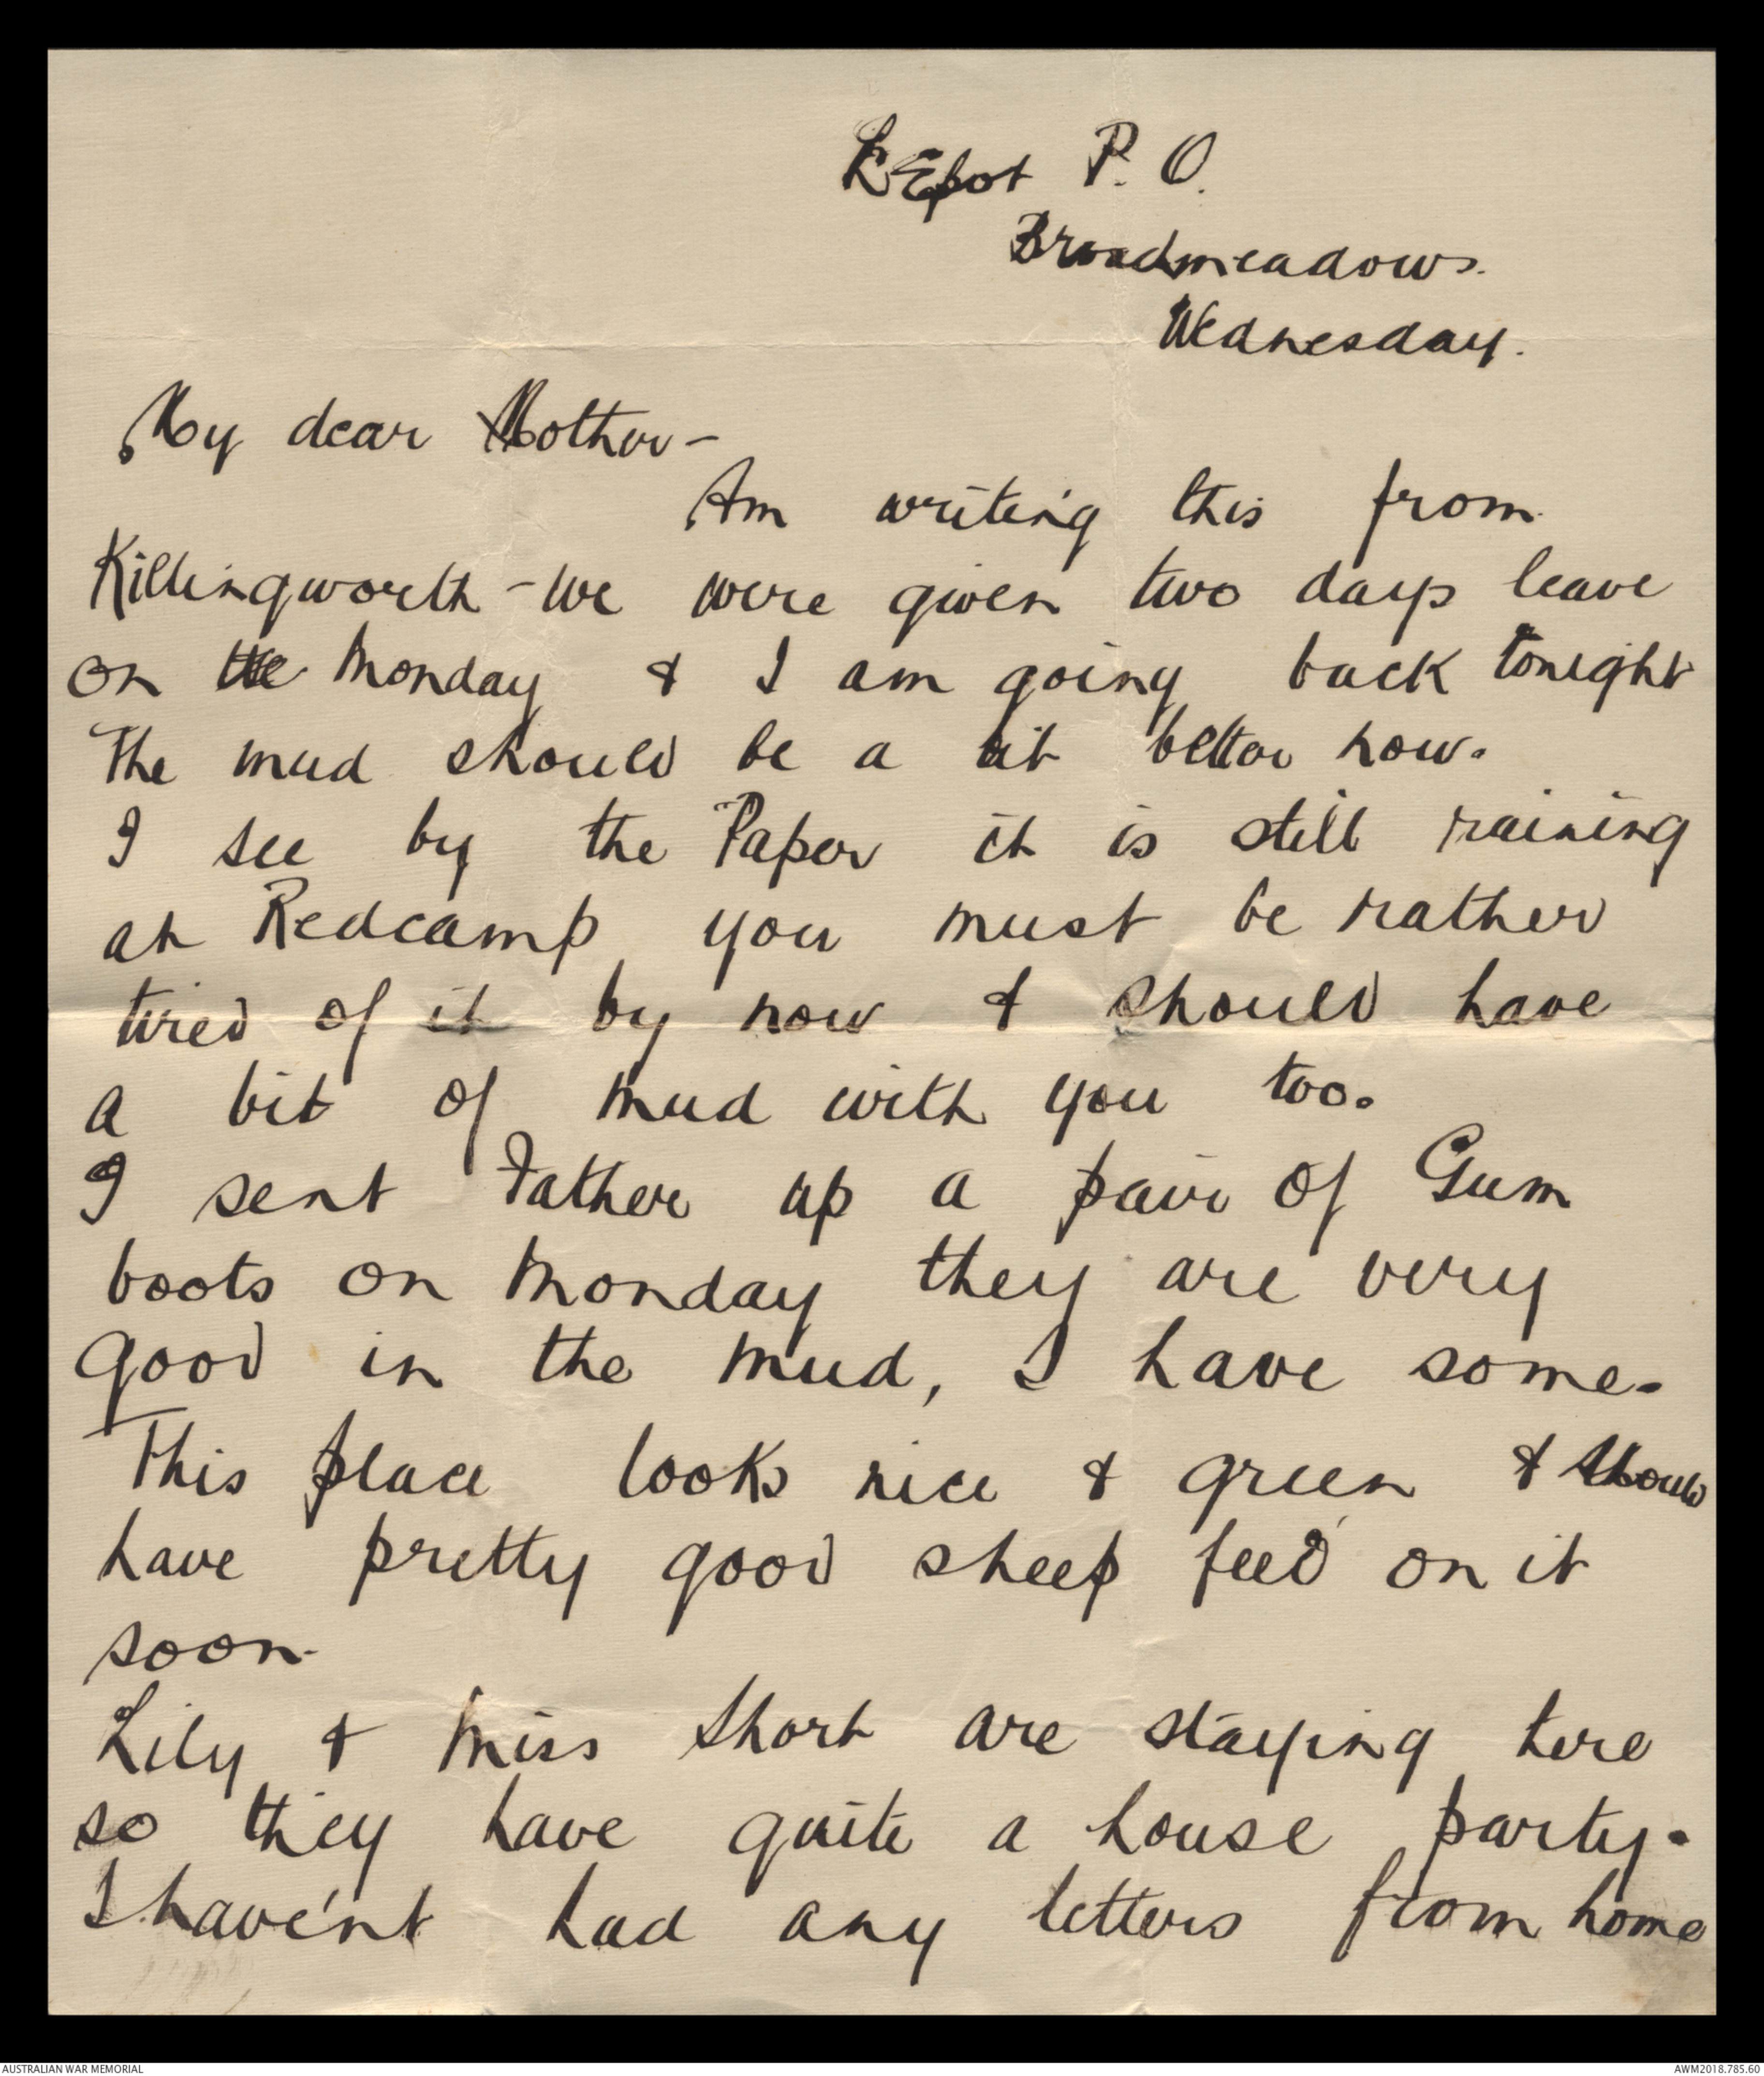 Depot P. O.
Broadmeadows.
Wednesday.
My dear Mother -
Am writing this from
Killingworth - we were given two days leave
on the Monday & I am going back tonight
The mud should be a bit better now.
I see by the Paper it is still raining
at Redcamp you must be rather
tired of it by now & should have
a bit of mud with you too.
I sent Father up a pair of Gum
boots on Monday they are very
good in the mud, I have some.
This place looks nice & green & should
have pretty good sheep feed on it
soon.
Lily & Miss Short are staying here
so they have quite a house party.
I have'nt had any letters from home
AUSTRALIAN WAR MEMORIAL
AWM2018.785.60